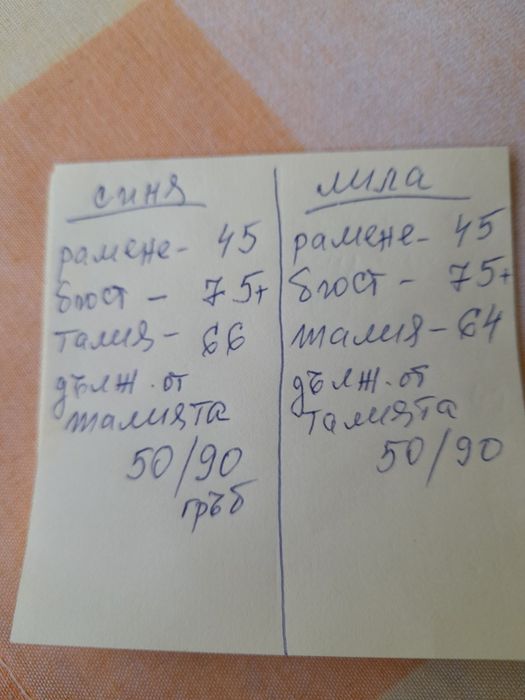 синя
рамене - 45
бюст - 75+
талия - 66
дълж. от
талията
50/90
гръб
лила
рамене - 45
бюст - 75+
талия - 64
дълж. от
талията
50/90